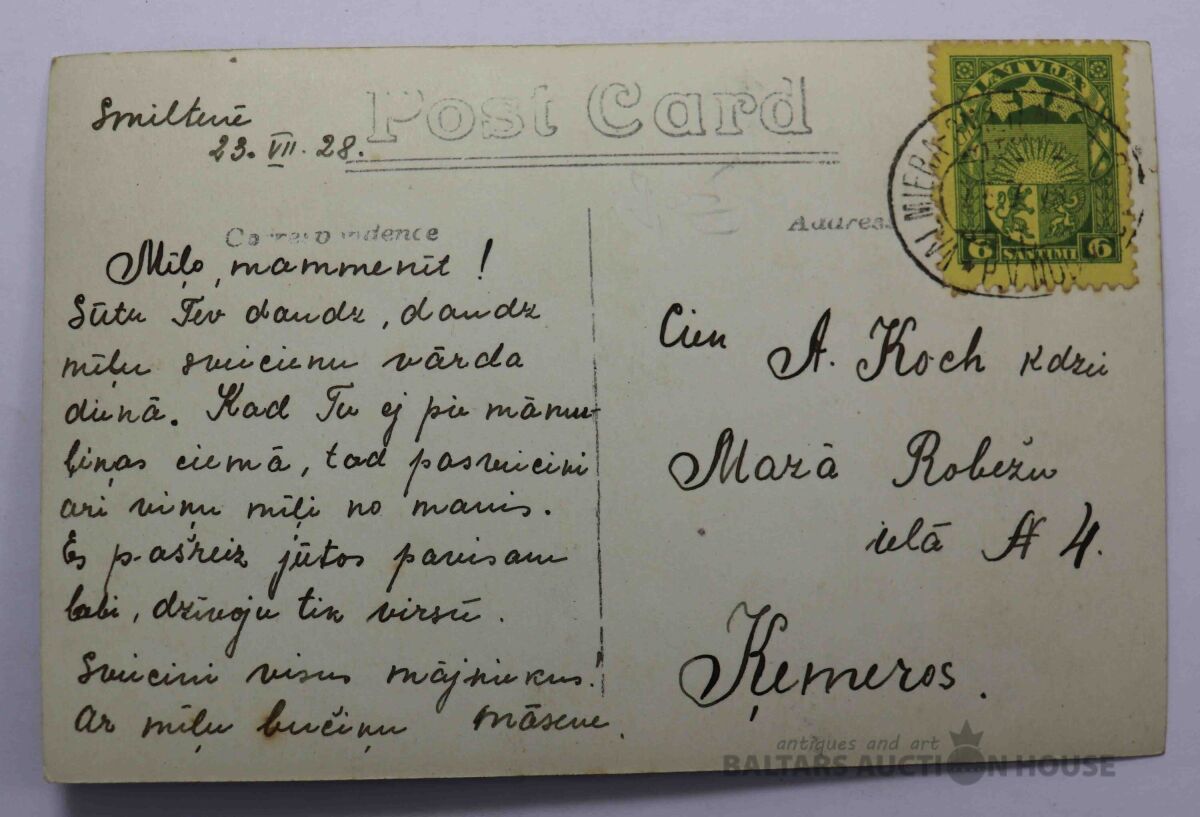 Smiltenē
23. VII. 28.
Post Card
Correspondence
Address
LATVIJA
6 SANTIMI 6
Mīļo mammenīt!
Sūtu Tev daudz, daudz
mīļu sveicienu vārda
dienā. Kad Tu ej pie māmu-
liņas ciemā, tad pasveicini
arī viņu mīļi no manis.
Es pašreiz jūtos pavisam
labi, dzīvoju tik virsū.
Sveicini visus mājniekus!
Ar mīļu bučiņu māsene.
Cien A. Koch kdzei
Mazā Robežu
ielā № 4.
Ķemeros.
antiques and art
BALTARS AUCTION HOUSE